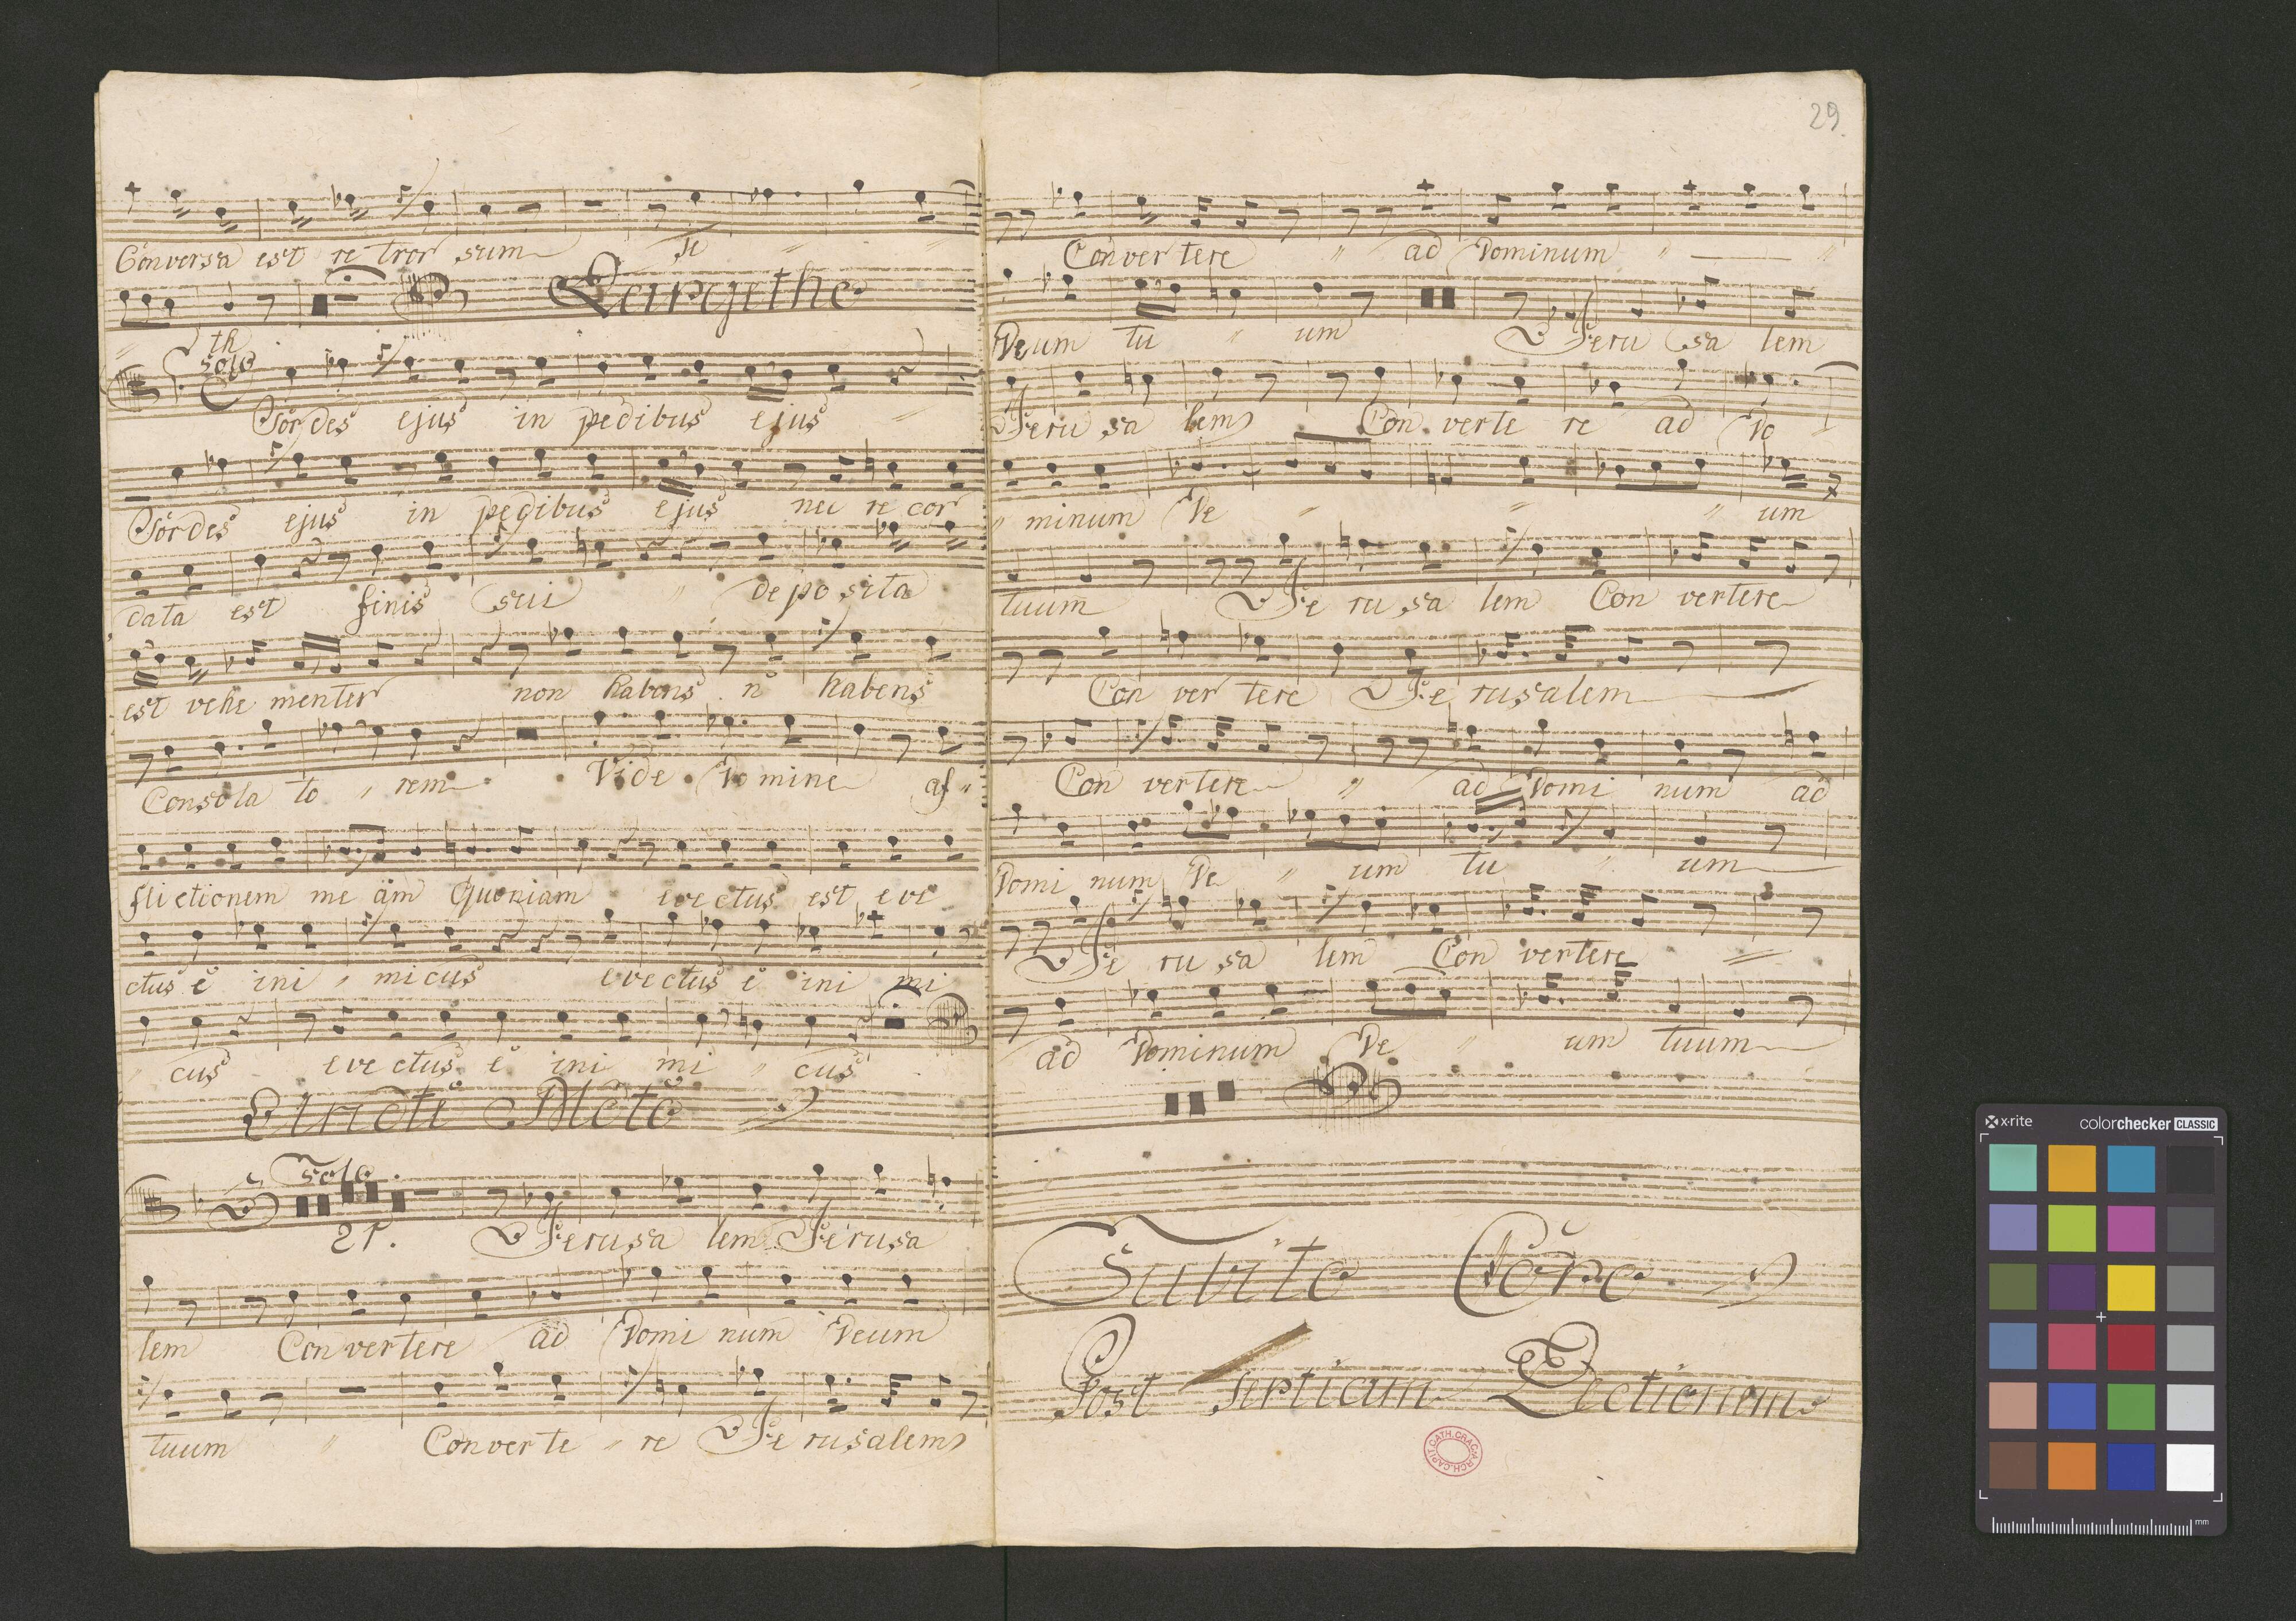 Conversa est re tror sum se " "
Largetho
Solo
Sordes ejus in pedibus ejus "
Sordes ejus in pedibus ejus nec re cor
data est finis sui " deposita
est vehe menter non habens n habens
Consola to " rem Vide Domine af "
fli ctionem me am Quoniam erectus est ere
ctus ẽ ini " micus erectus ẽ ini mi
" cus erectus ẽ ini mi " cus
Solo.
21. Jerusa lem Jerusa
lem Convertere ad Domi num Deum
tuum " Converte " re Je rusalem
29.
Convertere " ad Dominum " "
Deum tu " um Jeru sa lem
Jeru sa lem Con verte re ad Do "
" minum De " " " um
tuum Je ru sa lem Con vertere
Con ver tere Je rusalem
Con vertere " ad Domi num ad
Domi num De " um tu " um
Je ru sa lem Con vertere
ad Dominum De " um tuum
Subito Coro.
Post Tertiam Lectionem
ARCH.CAPIT.CATH.CRAC
x·rite colorchecker CLASSIC
mm